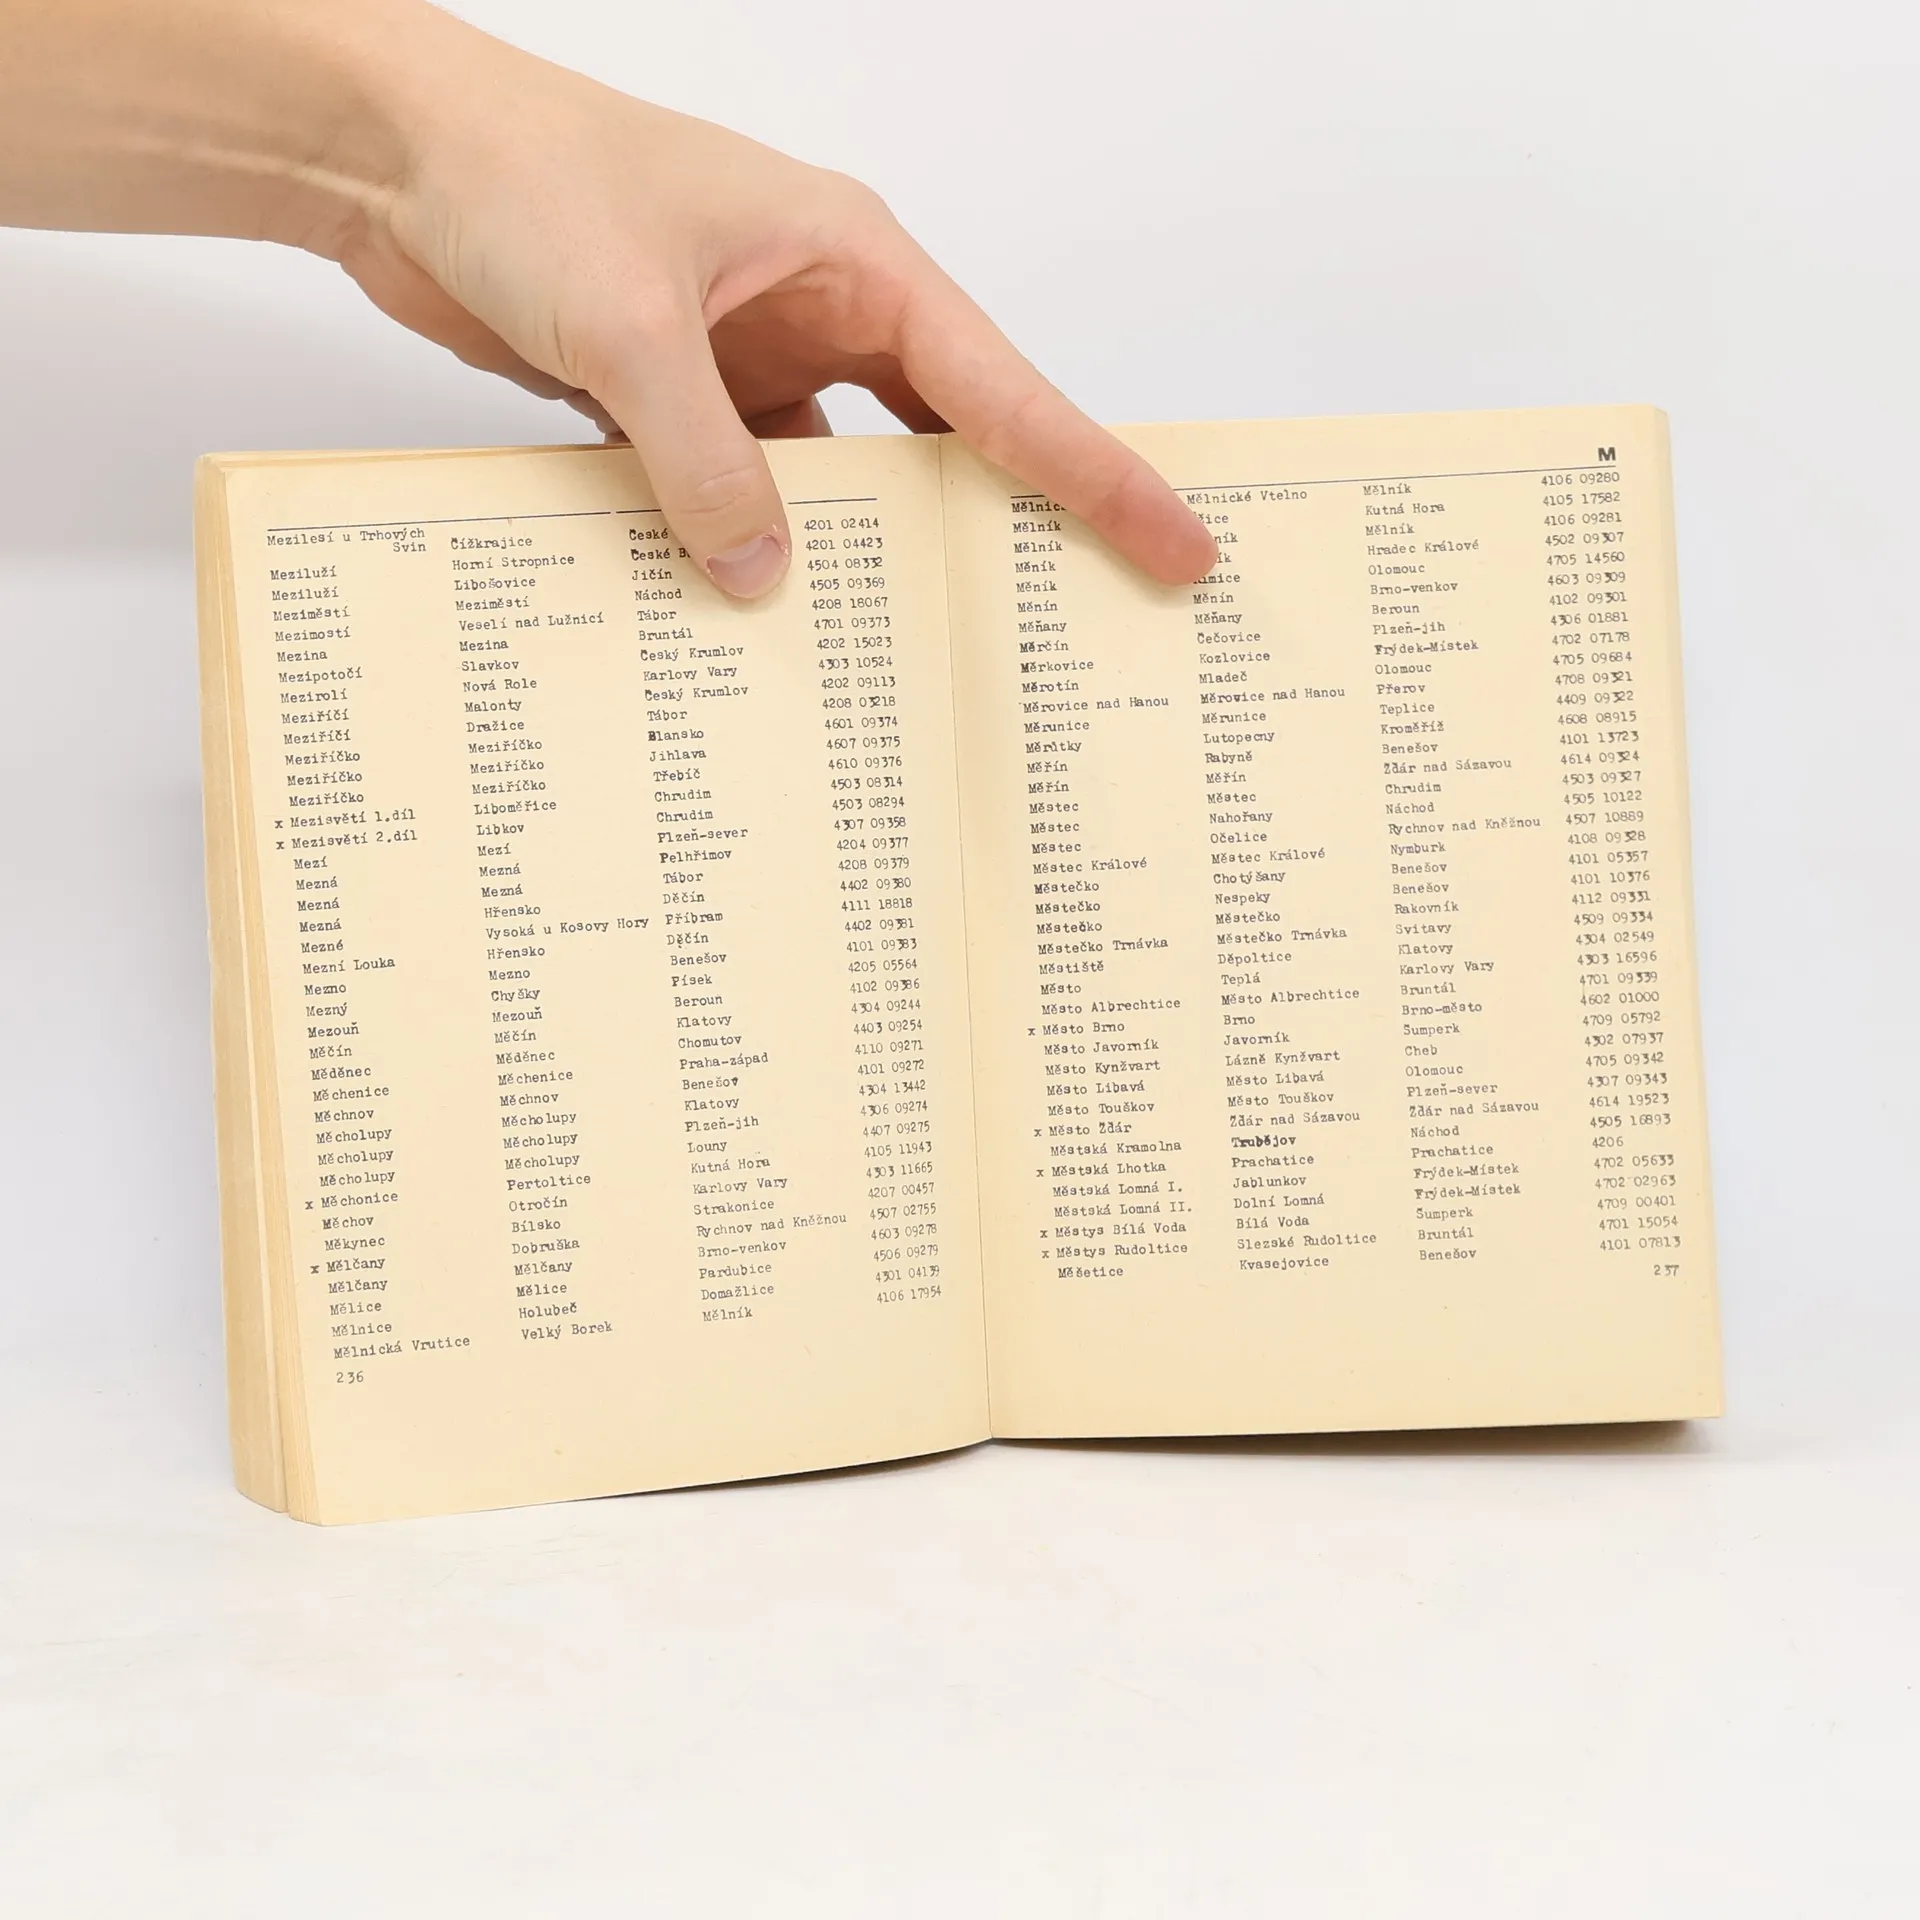 Mezilesí u Trhových
Svin Čížkrajice České 4201 02414
Meziluží Horní Stropnice České 4201 04423
Meziluží Libošovice Jičín 4504 08332
Meziměstí Meziměstí Náchod 4505 09369
Mezimostí Veselí nad Lužnicí Tábor 4208 18067
Mezina Mezina Bruntál 4701 09373
Mezipotočí Slavkov Český Krumlov 4202 15023
Mezirolí Nová Role Karlovy Vary 4303 10524
Meziříčí Malonty Český Krumlov 4202 09113
Meziříčí Dražice Tábor 4208 03218
Meziříčko Meziříčko Blansko 4601 09374
Meziříčko Meziříčko Jihlava 4607 09375
Meziříčko Meziříčko Třebíč 4610 09376
x Mezisvětí 1.díl Liboměřice Chrudim 4503 08314
x Mezisvětí 2.díl Libkov Chrudim 4503 08294
Mezí Mezí Plzeň-sever 4307 09358
Mezná Mezná Pelhřimov 4204 09377
Mezná Mezná Tábor 4208 09379
Mezná Hřensko Děčín 4402 09380
Mezné Vysoká u Kosovy Hory Příbram 4111 18818
Mezní Louka Hřensko Děčín 4402 09381
Mezno Mezno Benešov 4101 09383
Mezný Chyšky Písek 4205 05564
Mezouň Mezouň Beroun 4102 09386
Měčín Měčín Klatovy 4304 09244
Měděnec Měděnec Chomutov 4403 09254
Měchenice Měchenice Praha-západ 4110 09271
Měchnov Měchnov Benešov 4101 09272
Měcholupy Měcholupy Klatovy 4304 13442
Měcholupy Měcholupy Plzeň-jih 4306 09274
Měcholupy Měcholupy Louny 4407 09275
x Měchonice Pertoltice Kutná Hora 4105 11943
Měchov Otročín Karlovy Vary 4303 11665
Měkynec Bílsko Strakonice 4207 00457
x Mělčany Dobruška Rychnov nad Kněžnou 4507 02755
Mělčany Mělčany Brno-venkov 4603 09278
Mělice Mělice Pardubice 4506 09279
Mělnice Holubeč Domažlice 4301 04139
Mělnická Vrutice Velký Borek Mělník 4106 17954
236
M
Mělnické Vtelno Mělník 4106 09280
Mělník Kutná Hora 4105 17582
Mělník Mělník 4106 09281
Měník Hradec Králové 4502 09307
Měník Olomouc 4705 14560
Měnín Měnín Brno-venkov 4603 09309
Měňany Měňany Beroun 4102 09301
Měrčín Čečovice Plzeň-jih 4306 01881
Měrkovice Kozlovice Frýdek-Místek 4702 07178
Měrotín Mladeč Olomouc 4705 09684
Měrovice nad Hanou Měrovice nad Hanou Přerov 4708 09321
Měrunice Měrunice Teplice 4409 09322
Měrůtky Lutopecny Kroměříž 4608 08915
Měřín Rabyně Benešov 4101 13723
Měřín Měřín Žďár nad Sázavou 4614 09324
Městec Městec Chrudim 4503 09327
Městec Nahořany Náchod 4505 10122
Městec Očelice Rychnov nad Kněžnou 4507 10889
Městec Králové Městec Králové Nymburk 4108 09328
Městečko Chotýšany Benešov 4101 05357
Městečko Nespeky Benešov 4101 10376
Městečko Městečko Rakovník 4112 09331
Městečko Trnávka Městečko Trnávka Svitavy 4509 09334
Městiště Děpoltice Klatovy 4304 02549
Město Teplá Karlovy Vary 4303 16596
Město Albrechtice Město Albrechtice Bruntál 4701 09339
x Město Brno Brno Brno-město 4602 01000
Město Javorník Javorník Šumperk 4709 05792
Město Kynžvart Lázně Kynžvart Cheb 4302 07937
Město Libavá Město Libavá Olomouc 4705 09342
Město Touškov Město Touškov Plzeň-sever 4307 09343
x Město Žďár Žďár nad Sázavou Žďár nad Sázavou 4614 19523
Městská Kramolna Trubějov Náchod 4505 16893
x Městská Lhotka Prachatice Prachatice 4206
Městská Lomná I. Jablunkov Frýdek-Místek 4702 05633
Městská Lomná II. Dolní Lomná Frýdek-Místek 4702 02963
x Městys Bílá Voda Bílá Voda Šumperk 4709 00401
x Městys Rudoltice Slezské Rudoltice Bruntál 4701 15054
Měšetice Kvasejovice Benešov 4101 07813
237